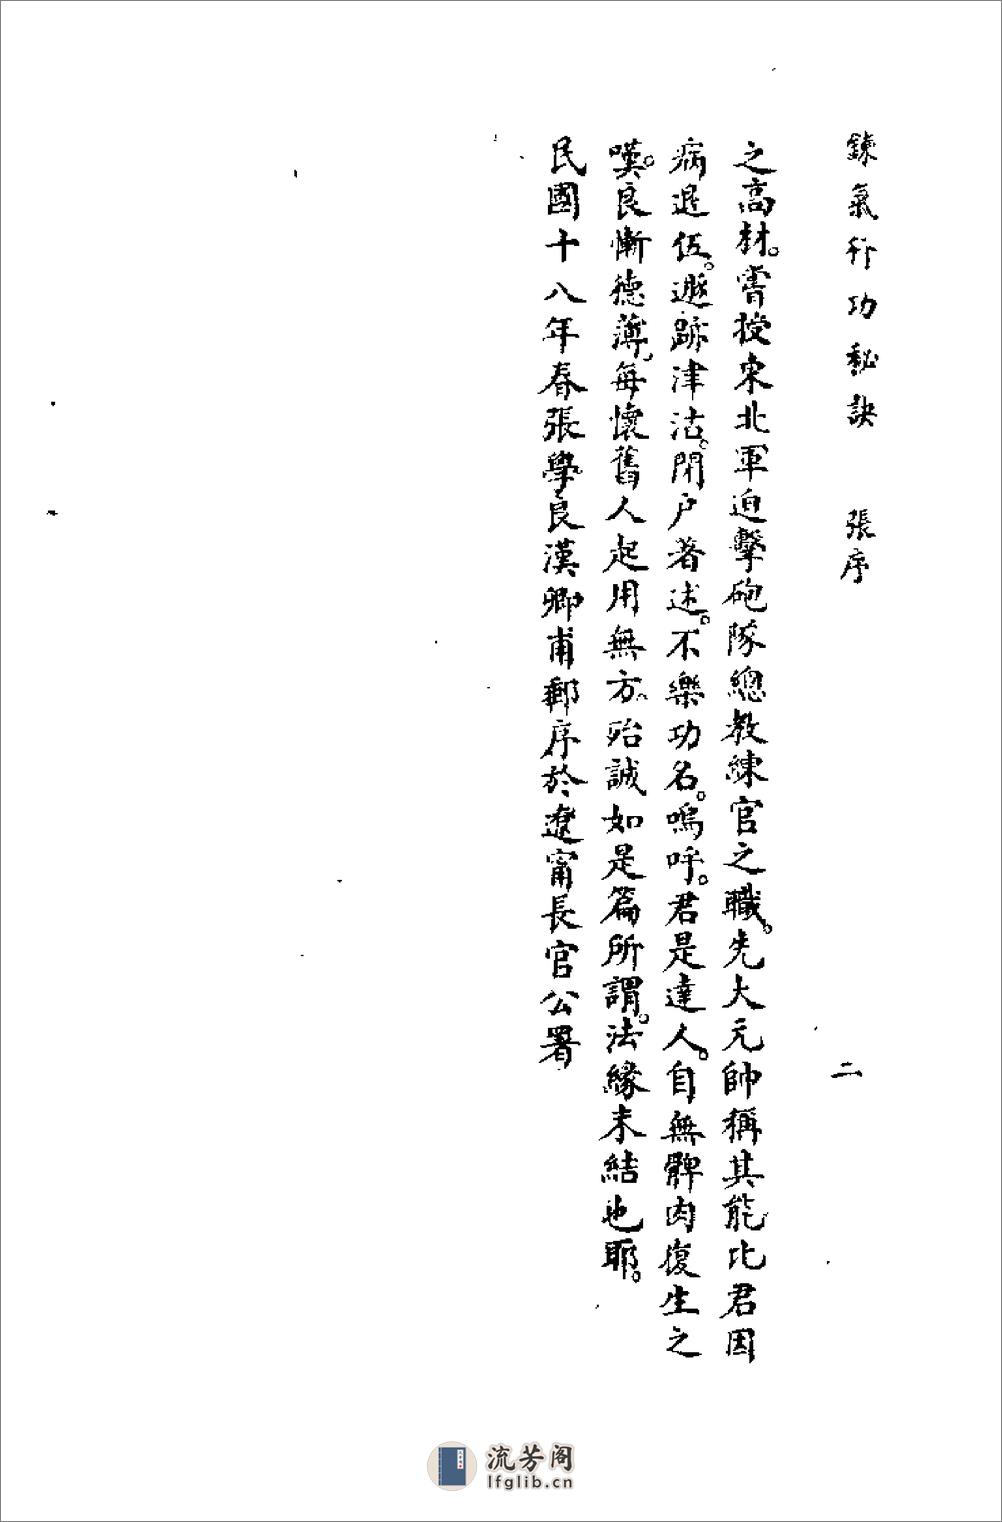 鍊氣行功秘訣 張序 二
之高材。嘗授東北軍迫擊砲隊總教練官之職。先大元帥稱其能比君因
病退伍。遯跡津沽。閉户著述。不樂功名。嗚呼。君是達人。自無髀肉復生之
嘆。良慚德薄。每懷舊人起用無方。殆誠如是篇所謂。法緣未結也耶。
民國十八年春張學良漢卿甫郵序於遼甯長官公署
流芳阁
lfglib.cn